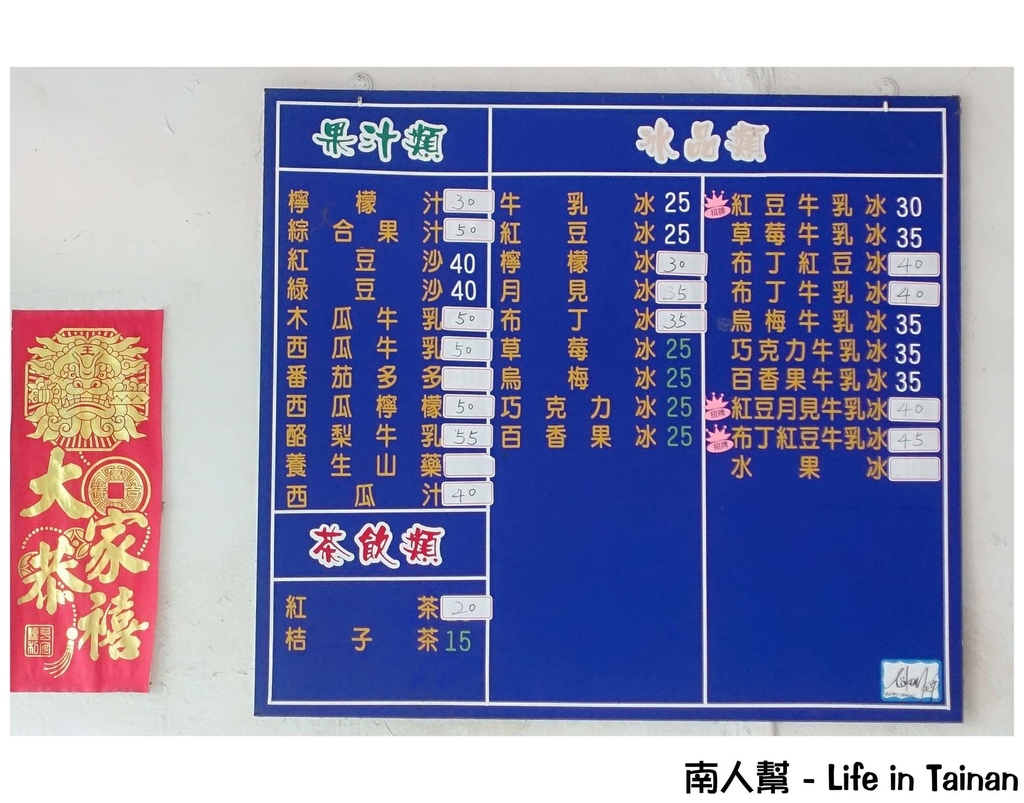 果汁類
檸檬汁 30
綜合果汁 50
紅豆沙 40
綠豆沙 40
木瓜牛乳 50
西瓜牛乳 50
番茄多多
西瓜檸檬 50
酪梨牛乳 55
養生山藥
西瓜汁 40
茶飲類
紅茶 20
桔子茶 15
冰品類
牛乳冰 25
紅豆冰 25
檸檬冰 30
月見冰 35
布丁冰 35
草莓冰 25
烏梅冰 25
巧克力冰 25
百香果冰 25
招牌 紅豆牛乳冰 30
草莓牛乳冰 35
布丁紅豆冰 40
布丁牛乳冰 40
烏梅牛乳冰 35
巧克力牛乳冰 35
百香果牛乳冰 35
招牌 紅豆月見牛乳冰 40
招牌 布丁紅豆牛乳冰 45
水果冰
王
大家恭禧
南人幫 - Life in Tainan